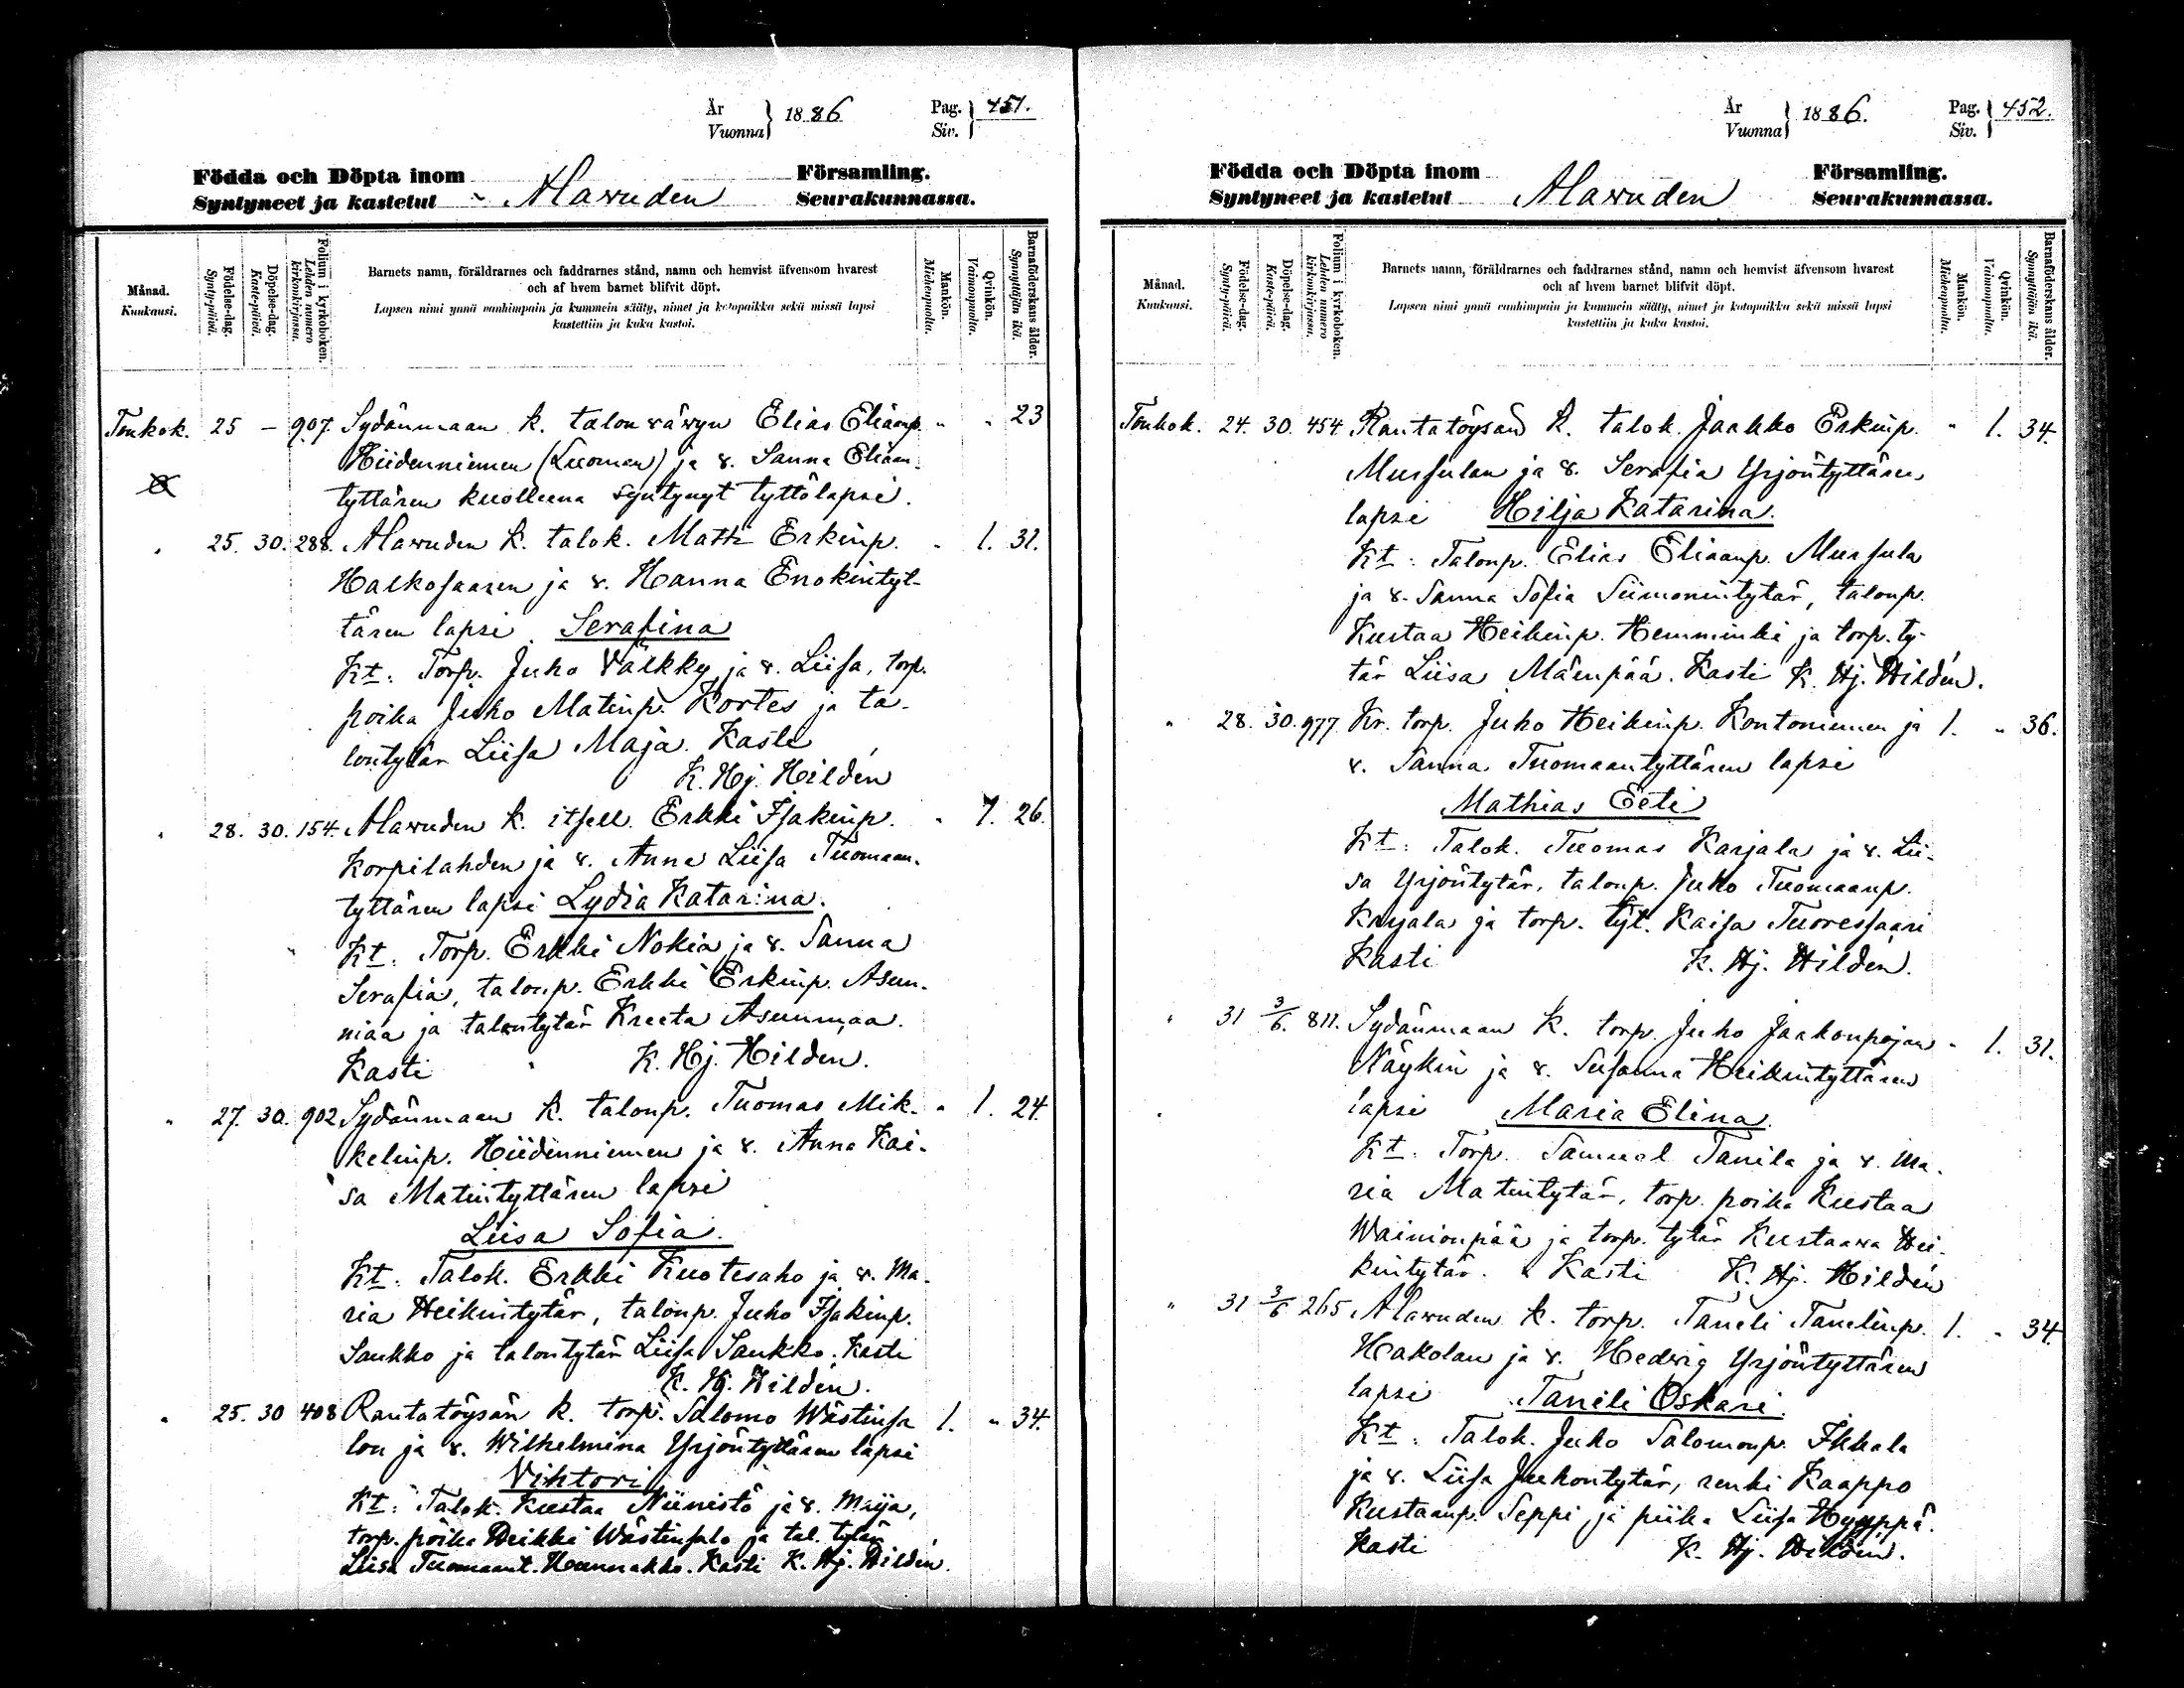 År
Vuonna
1886
Pag.
Siv.
451.
Födda och Döpta inom
Syntyneet ja kastetut
Alavuden
Församling.
Seurakunnassa.
Månad.
Kuukausi.
Födelse-dag.
Synty-päivä.
Döpelse-dag.
Kaste-päivä.
Folium i kyrkoboken.
Lehden numero
kirkonkirjassa.
Barnets namn, föräldrarnes och faddrarnes stånd, namn och hemvist äfvensom hvarest
och af hvem barnet blifvit döpt.
Lapsen nimi ynnä vanhimpain ja kummein sääty, nimet ja kotopaikka sekä missä lapsi
kastettiin ja kuka kastoi.
Mankön.
Miehenpuolta.
Qvinkön.
Vaimonpuolta.
Barnaföderskans ålder.
Synnyttäjän ikä.
Toukok. 25 – 907. Sydänmaan k. talon vävyn Elias Eliaanp. " " 23
Hiidenniemen (Luoman) ja v. Sanna Eliaan-
tyttären kuolleena syntynyt tyttölapsi.
" 25. 30. 288. Alavuden k. talok. Matti Erkinp. " 1. 31.
Halkosaaren ja v. Hanna Enokintyt-
tären lapsi Serafina
Kt: Torp. Juho Välkky ja v. Liisa, torp.
poika Juho Matinp. Kortes ja ta-
lontytär Liisa Maja. Kasti
K. Hj. Hildén
" 28. 30. 154. Alavuden k. itsell. Erkki Isakinp. " 1. 26.
Korpilahden ja v. Anna Liisa Tuomaan-
tyttären lapsi Lydia Katarina.
Kt: Torp. Erkki Nokia ja v. Sanna
Serafia, talonp. Erkki Erkinp. Asun-
maa ja talontytär Kreeta Asunmaa.
Kasti K. Hj. Hildén.
" 27. 30. 902 Sydänmaan k. talonp. Tuomas Mik- " 1. 24.
kelinp. Hiidenniemen ja v. Anna Kai-
sa Matintyttären lapsi
Liisa Sofia.
Kt: Talok. Erkki Kuotesaho ja v. Ma-
ria Heikintytär, talonp. Juho Isakinp.
Saukko ja talontytär Liisa Saukko. Kasti
K. Hj. Hildén.
" 25. 30 408 Rantatöysän k. torp. Salomo Wästinsa 1. " 34.
lon ja v. Wilhelmina Yrjöntyttären lapsi
Vihtori
Kt: Talok. Kustaa Niinistö ja v. Maija,
torp. poika Heikki Wästinsalo ja tal. tytär
Liisa Tuomaant. Hunnakko. Kasti K. Hj. Hildén.
År
Vuonna
1886.
Pag.
Siv.
452.
Födda och Döpta inom
Syntyneet ja kastetut
Alavuden
Församling.
Seurakunnassa.
Månad.
Kuukausi.
Födelse-dag.
Synty-päivä.
Döpelse-dag.
Kaste-päivä.
Folium i kyrkoboken.
Lehden numero
kirkonkirjassa.
Barnets namn, föräldrarnes och faddrarnes stånd, namn och hemvist äfvensom hvarest
och af hvem barnet blifvit döpt.
Lapsen nimi ynnä vanhimpain ja kummein sääty, nimet ja kotopaikka sekä missä lapsi
kastettiin ja kuka kastoi.
Mankön.
Miehenpuolta.
Qvinkön.
Vaimonpuolta.
Barnaföderskans ålder.
Synnyttäjän ikä.
Toukok. 24. 30. 454 Rantatöysän k. talok. Jaakko Erkinp. " 1. 34.
Mursulan ja v. Serafia Yrjöntyttären
lapsi Hilja Katarina.
Kt: Talonp. Elias Eliaanp. Mursula
ja v. Sanna Sofia Siimonintytär, talonp.
Kustaa Heikinp. Hemminki ja torp. ty-
tär Liisa Mäenpää. Kasti K. Hj. Hildén.
" 28. 30. 977. Kr. torp. Juho Heikinp. Kontoniemen ja 1. " 36.
v. Sanna Tuomaantyttären lapsi
Mathias Eeti
Kt: Talok. Tuomas Karjala ja v. Lii-
sa Yrjöntytär, talonp. Juho Tuomaanp.
Karjala ja torp. tyt. Kaisa Tuoressaari
Kasti K. Hj. Hildén.
" 31 3/6. 811. Sydänmaan k. torp. Juho Jaakonpojan " 1. 31.
Näykin ja v. Susanna Heikintyttären
lapsi Maria Elina.
Kt: Torp. Samuel Tanila ja v. Ma-
ria Matintytär, torp. poika Kustaa
Wainionpää ja torp. tytär Kustaava Hei-
kintytär. Kasti K. Hj. Hildén
" 31 3/6 265 Alavuden k. torp. Taneli Tanelinp. 1. " 34.
Hakolan ja v. Hedvig Yrjöntyttären
lapsi Taneli Oskari.
Kt: Talok. Juho Salomonp. Ikkala
ja v. Liisa Juhontytär, renki Kaappo
Kustaanp. Seppi ja piika Liisa Hyyppä.
Kasti K. Hj. Hildén.